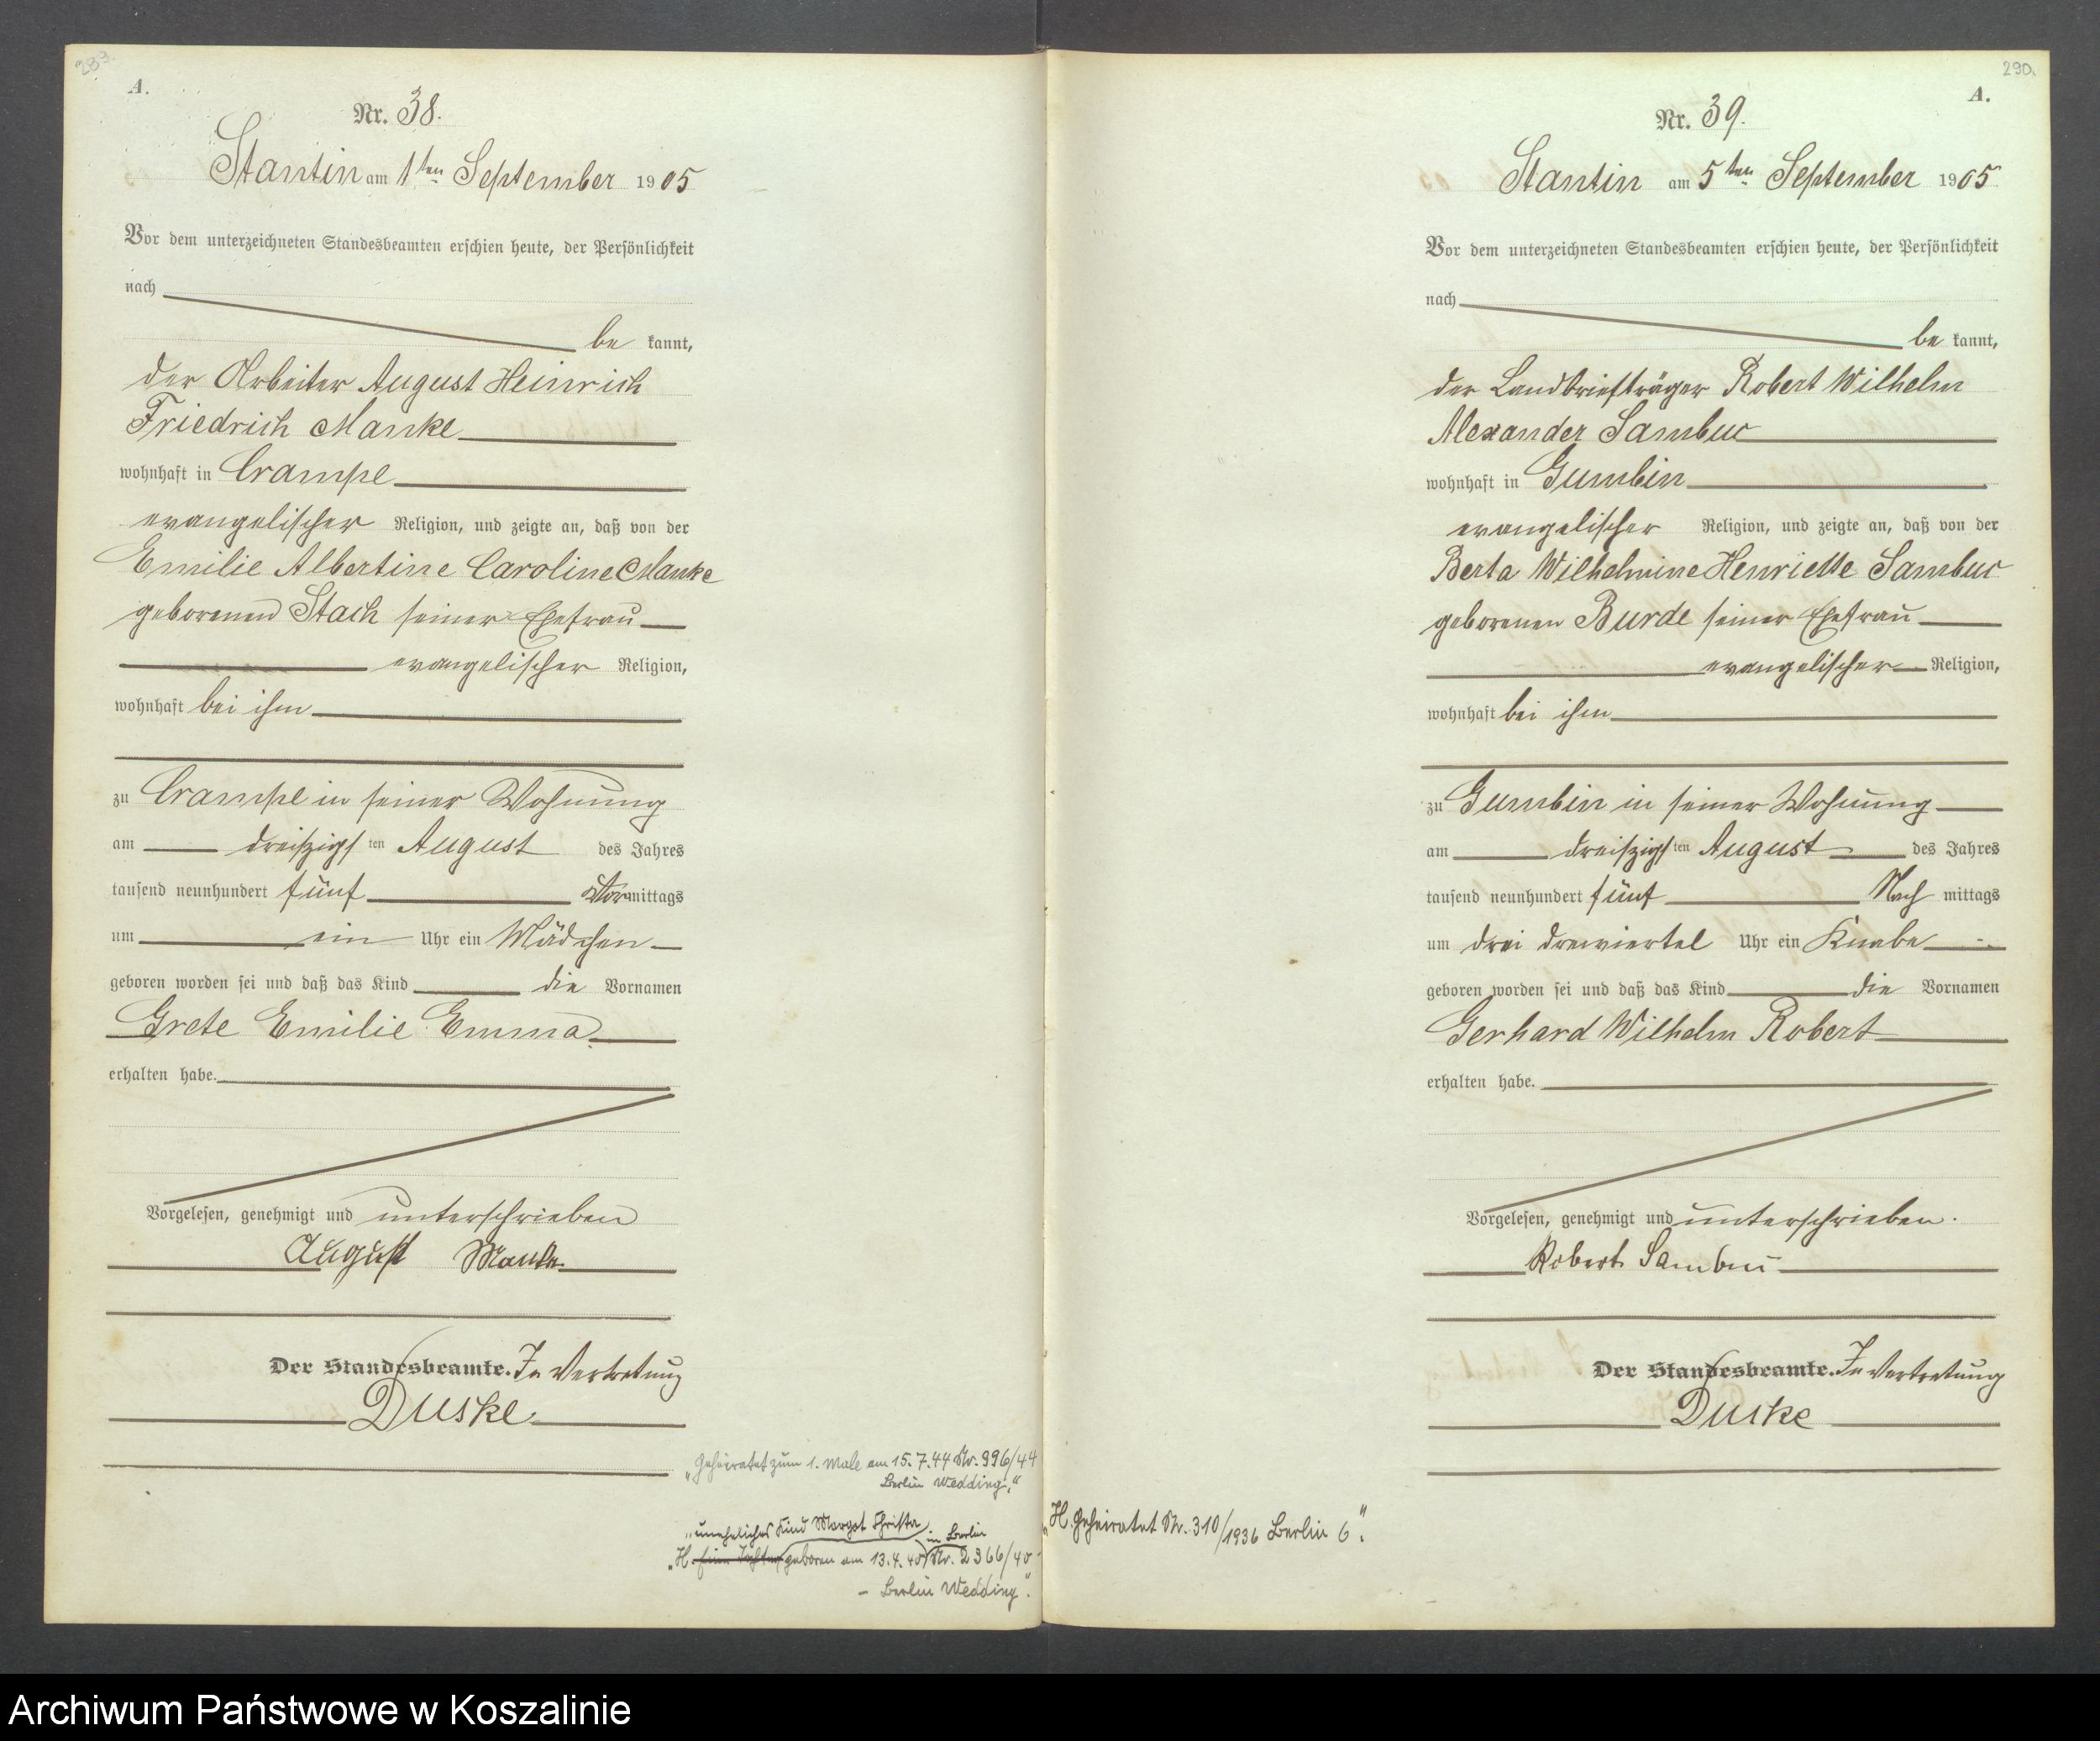 289.
A.
Nr. 38.
Stantin am 1ten September 1905
Vor dem unterzeichneten Standesbeamten erschien heute, der Persönlichkeit
nach
be kannt,
der Arbeiter August Heinrich
Friedrich Manke
wohnhaft in Crampe
evangelischer Religion, und zeigte an, daß von der
Emilie Albertine Caroline Manke
geborenen Stach seiner Ehefrau
evangelischer Religion,
wohnhaft bei ihm
zu Crampe in seiner Wohnung
am dreißigsten August des Jahres
tausend neunhundert fünf Vormittags
um ein Uhr ein Mädchen
geboren worden sei und daß das Kind die Vornamen
Grete Emilie Emma
erhalten habe.
Vorgelesen, genehmigt und unterschrieben
August Manke
Der Standesbeamte. In Vertretung
Duske
„Geheiratet zum 1. Male am 15.7.44 Nr. 996/44
Berlin Wedding."
„uneheliches Kind Margot Christa in Berlin
„H. geboren am 13.4.40 Nr. 2366/40
- Berlin Wedding".
290.
A.
Nr. 39.
Stantin am 5ten September 1905
Vor dem unterzeichneten Standesbeamten erschien heute, der Persönlichkeit
nach
be kannt,
der Landbriefträger Robert Wilhelm
Alexander Sambuc
wohnhaft in Gumbin
evangelischer Religion, und zeigte an, daß von der
Berta Wilhelmine Henriette Sambuc
geborenen Burde seiner Ehefrau
evangelischer Religion,
wohnhaft bei ihm
zu Gumbin in seiner Wohnung
am dreißigsten August des Jahres
tausend neunhundert fünf Nach mittags
um drei dreiviertel Uhr ein Knabe
geboren worden sei und daß das Kind die Vornamen
Gerhard Wilhelm Robert
erhalten habe.
Vorgelesen, genehmigt und unterschrieben.
Robert Sambuc
Der Standesbeamte. In Vertretung
Duske
„H. Geheiratet Nr. 310/1936 Berlin 6".
Archiwum Państwowe w Koszalinie